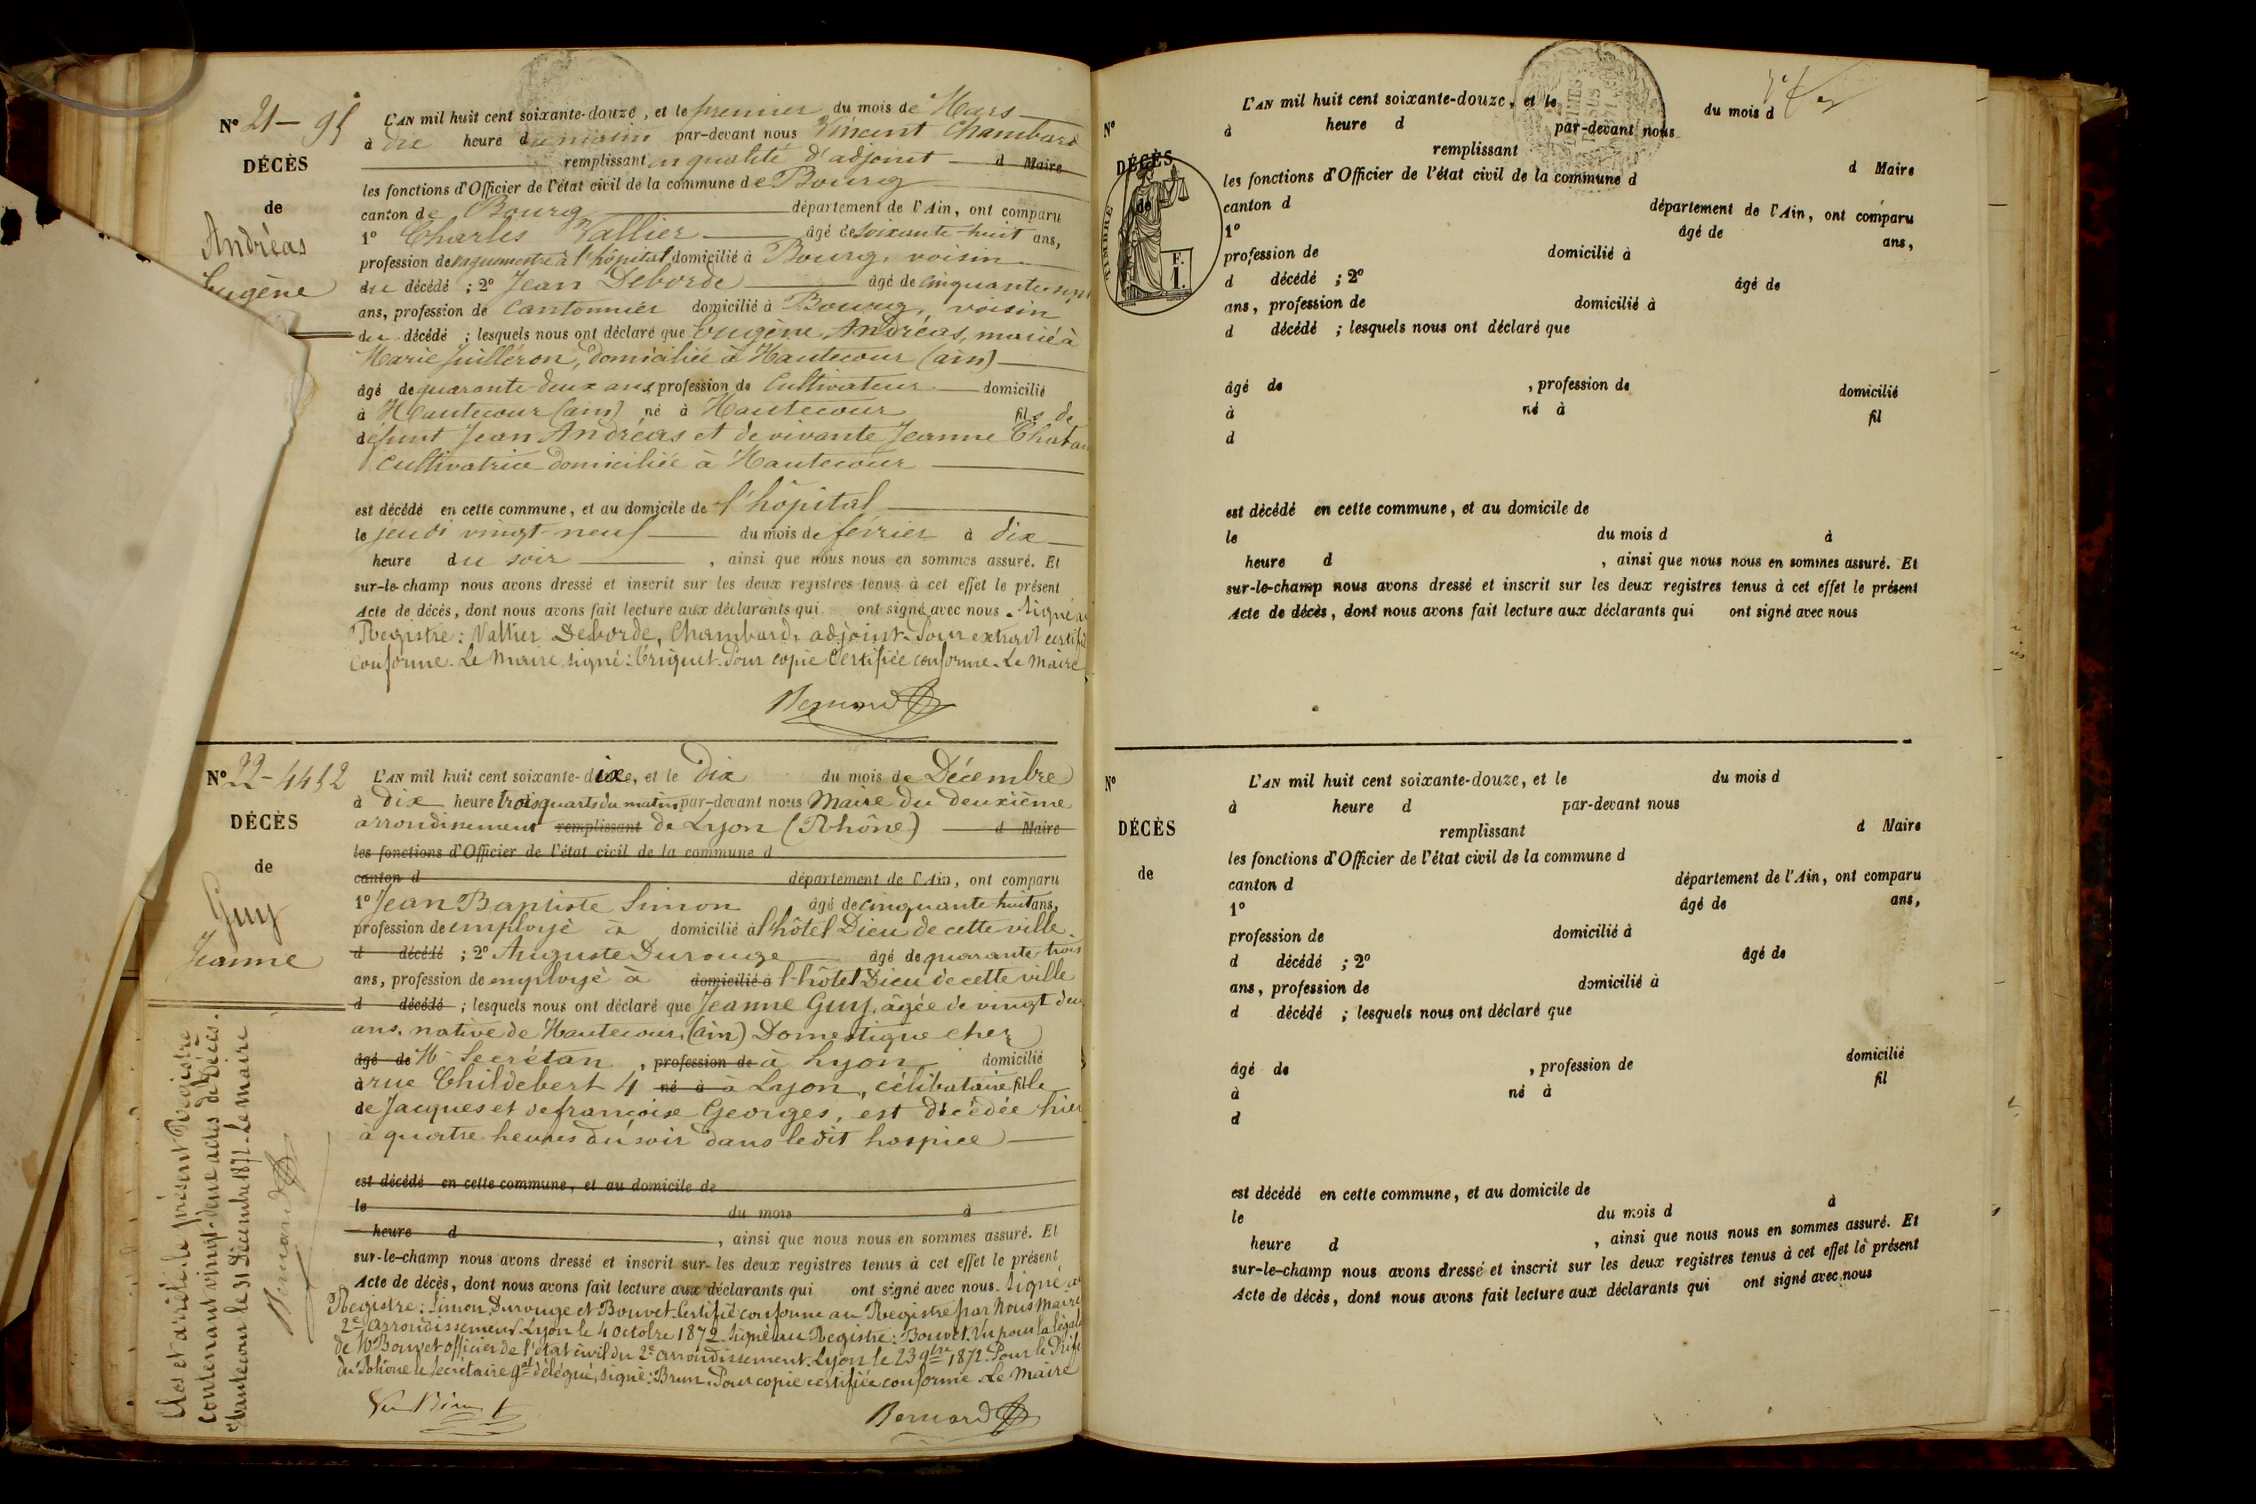 N° 21 - 95
DÉCÈS
de
Andréas
Eugène
L'AN mil huit cent soixante-douze, et le premier du mois de Mars
à dix heure du matin par-devant nous Vincent Chambard
remplissant en qualité d'adjoint d Maire
les fonctions d'Officier de l'état civil de la commune de Bourg
canton de Bourg département de l'Ain, ont comparu
1° Charles Vallier âgé de soixante-huit ans,
profession de à l'hôpital domicilié à Bourg, voisin
du décédé ; 2° Jean Deborde âgé de cinquante-sept
ans, profession de Cantonnier domicilié à Bourg, voisin
du décédé ; lesquels nous ont déclaré que Eugène Andréas, marié à
Marie Juilléron, domiciliée à Hautecour (ain)
âgé de quarante-deux ans, profession de Cultivateur domicilié
à Hautecour (ain) né à Hautecour fils de
défunt Jean Andréas et de vivante Jeanne
Cultivatrice domiciliée à Hautecour
est décédé en cette commune, et au domicile de l'hôpital
le jeudi vingt-neuf du mois de février à dix
heure du soir , ainsi que nous nous en sommes assuré. Et
sur-le-champ nous avons dressé et inscrit sur les deux registres tenus à cet effet le présent
Acte de décès, dont nous avons fait lecture aux déclarants qui ont signé avec nous. Signé au
Registre : Vallier Deborde, Chambard, adjoint. Pour extrait certifié
conforme. Le Maire, signé : Pour copie Certifiée conforme. Le Maire
Bernard
N° 22 - 4452
DÉCÈS
de
Guy
Jeanne
L'AN mil huit cent soixante-dixe, et le Dix du mois de Décembre
à dix heure trois quarts du matin par-devant nous Maire du deuxième
arrondissement remplissant de Lyon (Rhône) d Maire
les fonctions d'Officier de l'état civil de la commune d
canton d département de l'Ain, ont comparu
1° Jean Baptiste Simon âgé de cinquante huit ans,
profession de employé à domicilié à l'hôtel Dieu de cette ville.
d décédé ; 2° Auguste Durouge âgé de quarante trois
ans, profession de employé à domicilié à l'hôtel Dieu de cette ville
d décédé ; lesquels nous ont déclaré que Jeanne Guy, âgée de vingt deux
ans, native de Hautecour (ain) Domestique chez
âgé de Mr Secrétan , profession de à Lyon domicilié
à rue Childebert 4 né à à Lyon, célibataire fille
de Jacques et de françoise Georges, est décédée hier
à quatre heures du soir dans ledit hospice
est décédé en cette commune, et au domicile de
le du mois à
heure d , ainsi que nous nous en sommes assuré. Et
sur-le-champ nous avons dressé et inscrit sur les deux registres tenus à cet effet le présent
Acte de décès, dont nous avons fait lecture aux déclarants qui ont signé avec nous. Signé au
Registre : Simon Durouge et Bouvet. Certifié conforme au Registre par Nous Maire
2e arrondissement Lyon le 4 octobre 1872. Signé au Registre : Bouvet. Vu pour la légal
de Mr Bouvet officier de l'état civil du 2e arrondissement. Lyon le 23 9bre 1872. Pour le Préfet
du Rhône le Secrétaire gal délégué, signé : Brun. Pour copie certifiée conforme. Le Maire
Bernard
Clos et arrêté le présent Registre
contenant vingt-deux actes de Décès.
Hautecour le 31 Décembre 1872. Le Maire
Bernard
N°
DÉCÈS
de
TIMBRE
F.
1.
L'AN mil huit cent soixante-douze, et le du mois d
à heure d par-devant nous
remplissant d Maire
les fonctions d'Officier de l'état civil de la commune d
canton d département de l'Ain, ont comparu
1° âgé de ans,
profession de domicilié à
d décédé ; 2° âgé de
ans, profession de domicilié à
d décédé ; lesquels nous ont déclaré que
âgé de , profession de domicilié
à né à fil
d
est décédé en cette commune, et au domicile de
le du mois d à
heure d , ainsi que nous nous en sommes assuré. Et
sur-le-champ nous avons dressé et inscrit sur les deux registres tenus à cet effet le présent
Acte de décès, dont nous avons fait lecture aux déclarants qui ont signé avec nous
N°
DÉCÈS
de
L'AN mil huit cent soixante-douze, et le du mois d
à heure d par-devant nous
remplissant d Maire
les fonctions d'Officier de l'état civil de la commune d
canton d département de l'Ain, ont comparu
1° âgé de ans,
profession de domicilié à
d décédé ; 2° âgé de
ans, profession de domicilié à
d décédé ; lesquels nous ont déclaré que
âgé de , profession de domicilié
à né à fil
d
est décédé en cette commune, et au domicile de
le du mois d à
heure d , ainsi que nous nous en sommes assuré. Et
sur-le-champ nous avons dressé et inscrit sur les deux registres tenus à cet effet le présent
Acte de décès, dont nous avons fait lecture aux déclarants qui ont signé avec nous